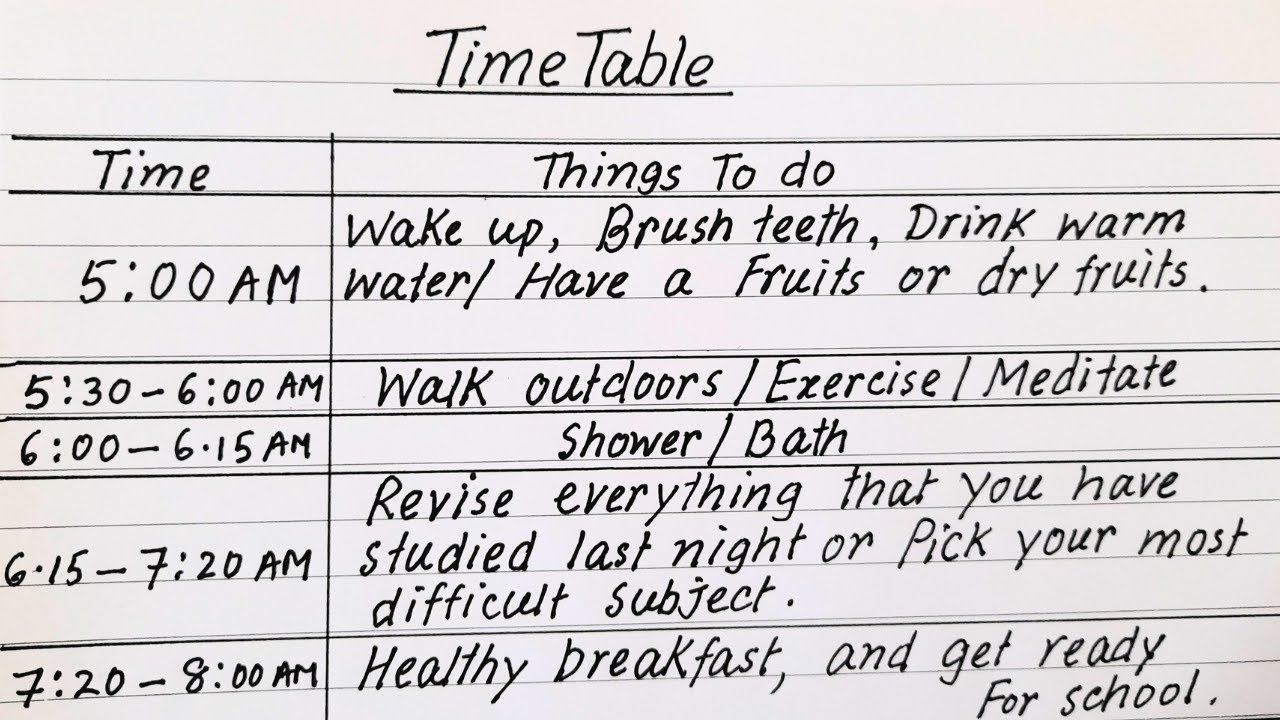 Time Table
Time Things To do
Wake up, Brush teeth, Drink warm
5:00 AM water/ Have a Fruits or dry fruits.
5:30 - 6:00 AM Walk outdoors / Exercise / Meditate
6:00 - 6.15 AM Shower / Bath
Revise everything that you have
6.15 - 7:20 AM studied last night or Pick your most
difficult subject.
7:20 - 8:00 AM Healthy breakfast, and get ready
For school.